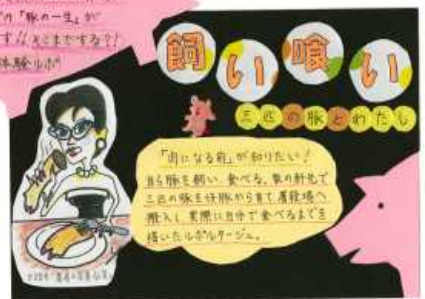 の「豚の一生」が
す!!そこまでする?!
体験ルポ
飼い喰い
三匹の豚とわたし
「肉になる前」が知りたい!
自ら豚を飼い 食べる。軒先で
三匹の豚を仔豚から育て 屠殺場へ
搬入し 実際に自分で食べるまでを
描いたルポルタージュ。